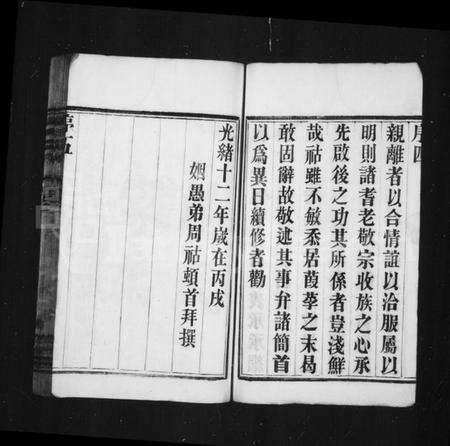 序四
親離者以合情誼以洽服屬以
明則諸耆老敬宗收族之心承
先啟後之功其所係者豈淺鮮
哉祜雖不敏忝居葭莩之末曷
敢固辭故敬述其事弁諸簡首
以爲異日續修者勸
光緒十二年歲在丙戌
姻愚弟周祜頓首拜撰